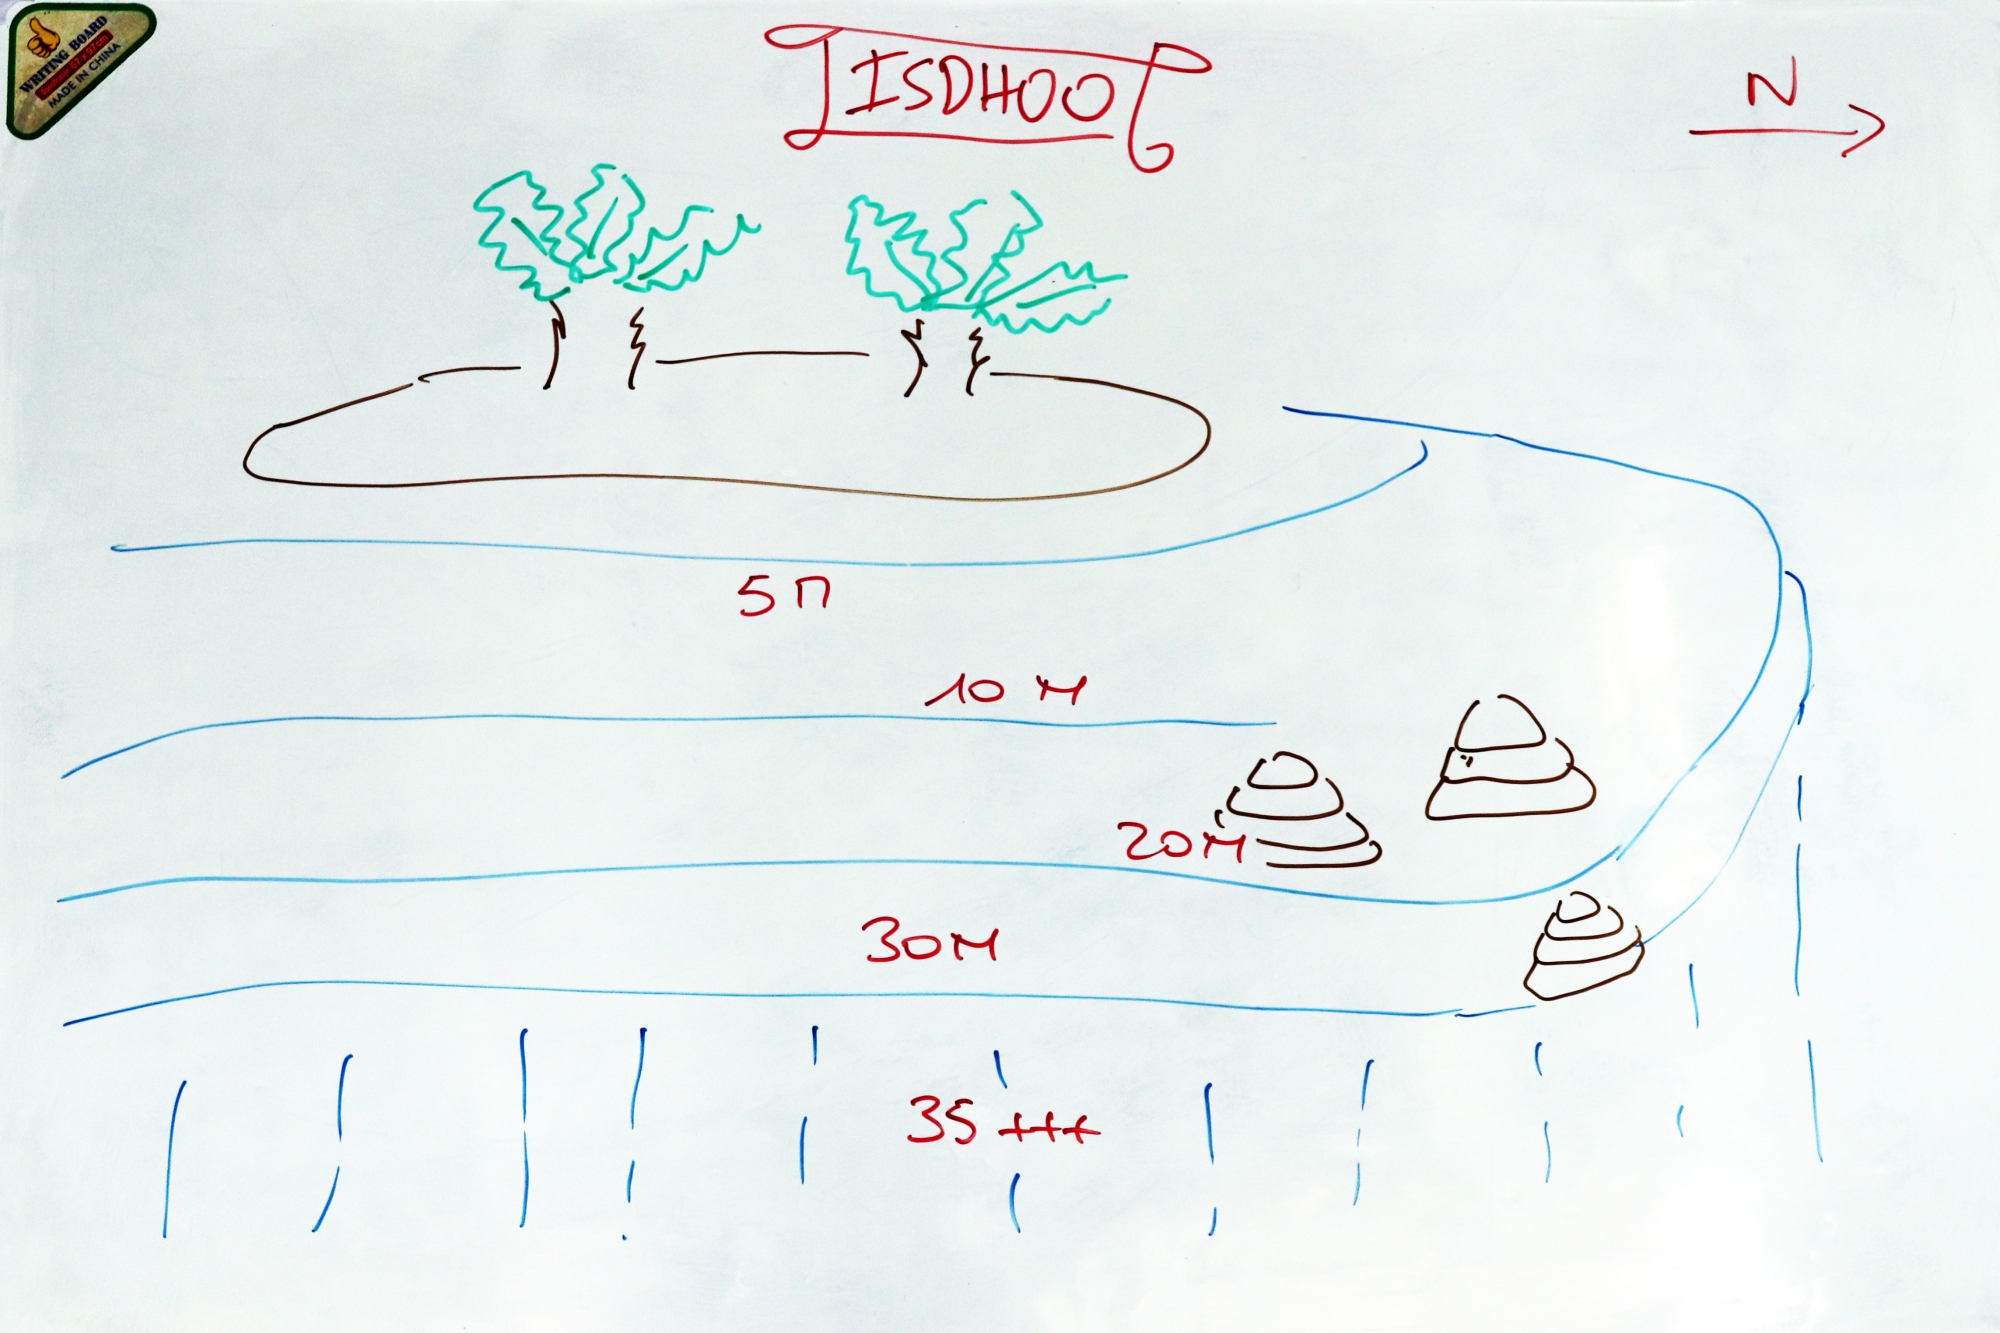 WRITING BOARD
MADE IN CHINA
ISDHOO
N
5 M
10 M
20M
30M
35 +++